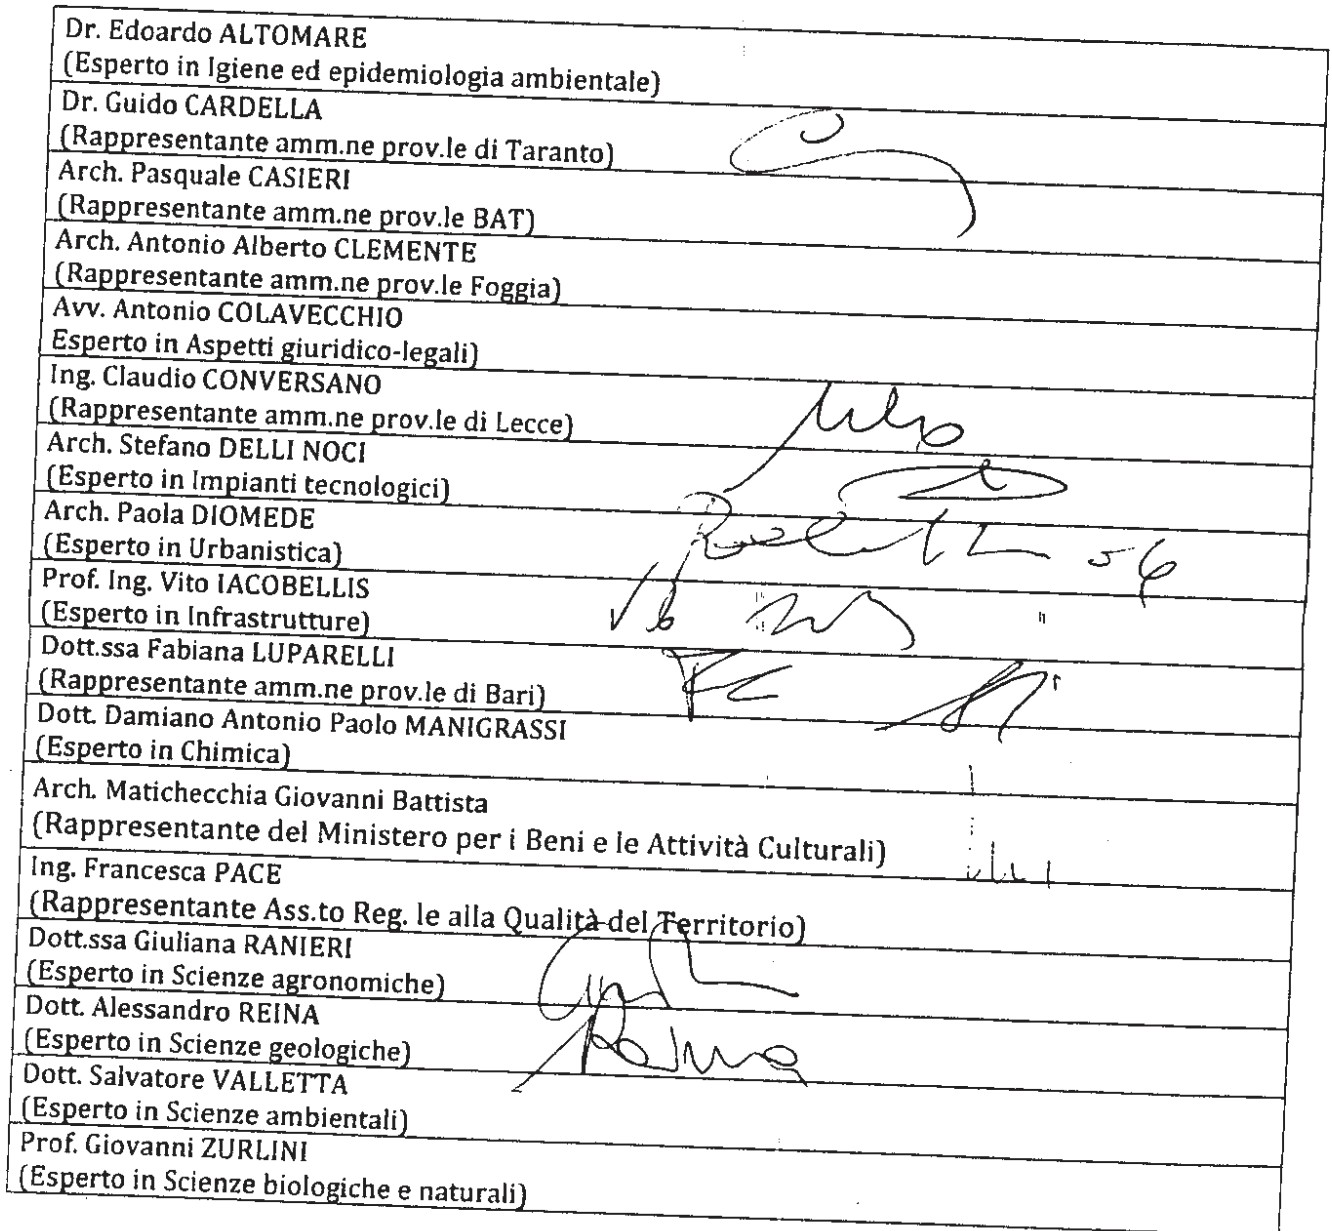 Dr. Edoardo ALTOMARE
(Esperto in Igiene ed epidemiologia ambientale)
Dr. Guido CARDELLA
(Rappresentante amm.ne prov.le di Taranto)
Arch. Pasquale CASIERI
(Rappresentante amm.ne prov.le BAT)
Arch. Antonio Alberto CLEMENTE
(Rappresentante amm.ne prov.le Foggia)
Avv. Antonio COLAVECCHIO
Esperto in Aspetti giuridico-legali)
Ing. Claudio CONVERSANO
(Rappresentante amm.ne prov.le di Lecce)
Arch. Stefano DELLI NOCI
(Esperto in Impianti tecnologici)
Arch. Paola DIOMEDE
(Esperto in Urbanistica)
Prof. Ing. Vito IACOBELLIS
(Esperto in Infrastrutture)
Dott.ssa Fabiana LUPARELLI
(Rappresentante amm.ne prov.le di Bari)
Dott. Damiano Antonio Paolo MANIGRASSI
(Esperto in Chimica)
Arch. Matichecchia Giovanni Battista
(Rappresentante del Ministero per i Beni e le Attività Culturali)
Ing. Francesca PACE
(Rappresentante Ass.to Reg. le alla Qualità del Territorio)
Dott.ssa Giuliana RANIERI
(Esperto in Scienze agronomiche)
Dott. Alessandro REINA
(Esperto in Scienze geologiche)
Dott. Salvatore VALLETTA
(Esperto in Scienze ambientali)
Prof. Giovanni ZURLINI
(Esperto in Scienze biologiche e naturali)